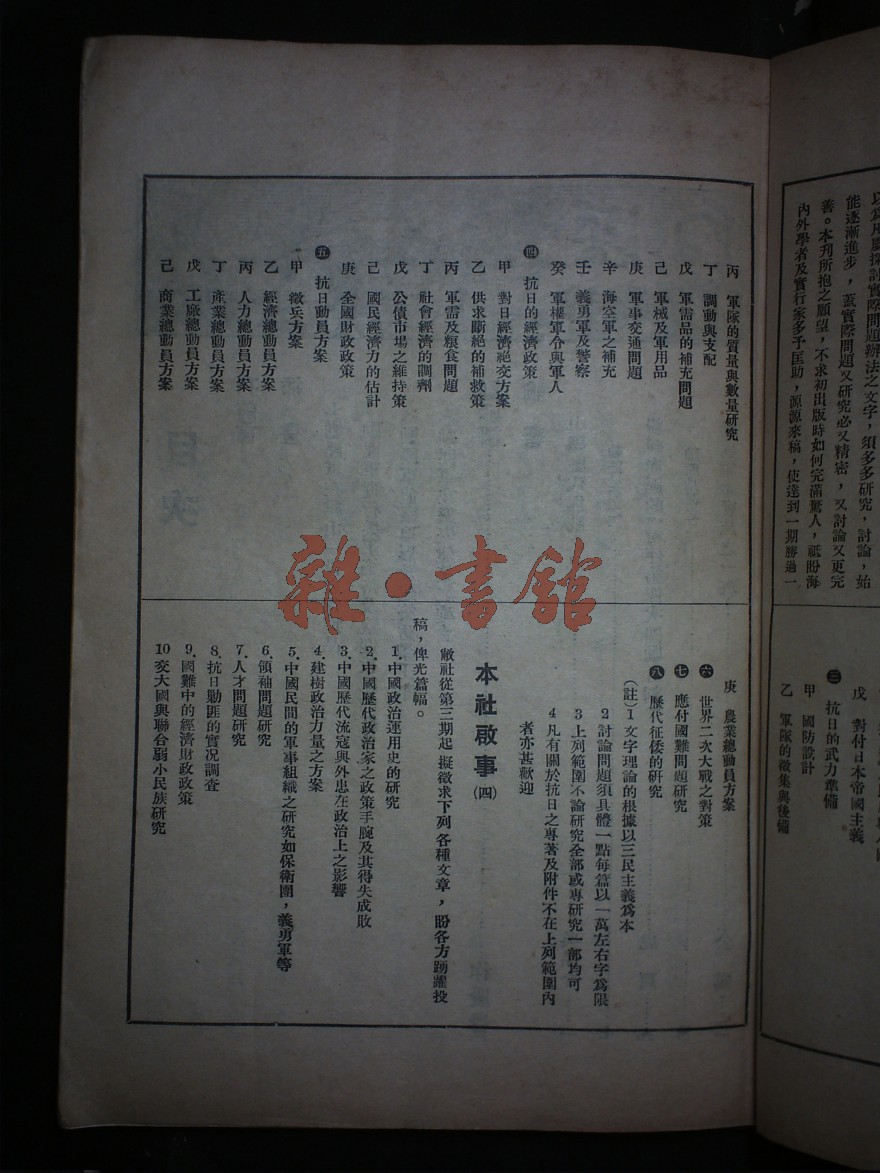 以爲凡屬探討實際問題辦法之文字，須多多研究，討論，始
能逐漸進步，蓋實際問題又研究必又精密，又討論又更完
善。本刊所抱之願望，不求初出版時如何完滿驚人，祇盼海
內外學者及實行家多予匡助，源源來稿，使達到一期勝過一
戊　對付日本帝國主義
㊂　抗日的武力準備
甲　國防設計
乙　軍隊的徵集與後備
丙　軍隊的質量與數量研究
丁　調動與支配
戊　軍需品的補充問題
己　軍械及軍用品
庚　軍事交通問題
辛　海空軍之補充
壬　義勇軍及警察
癸　軍權軍令與軍人
㊃　抗日的經濟政策
甲　對日經濟絕交方案
乙　供求斷絕的補救策
丙　軍需及粮食問題
丁　社會經濟的調劑
戊　公債市場之維持策
己　國民經濟力的估計
庚　全國財政政策
㊄　抗日動員方案
甲　徵兵方案
乙　經濟總動員方案
丙　人力總動員方案
丁　產業總動員方案
戊　工廠總動員方案
己　商業總動員方案
庚　農業總動員方案
㊅　世界二次大戰之對策
㊆　應付國難問題研究
㊇　歷代征倭的研究
(註) 1 文字理論的根據以三民主義爲本
2 討論問題須具體一點每篇以一萬左右字爲限
3 上列範圍不論研究全部或專研究一部均可
4 凡有關於抗日之專著及附件不在上列範圍內
者亦甚歡迎
本社啟事(四)
敝社從第三期起，擬徵求下列各種文章，盼各方踴躍投
稿，俾光篇幅。
1. 中國政治運用史的研究
2. 中國歷代政治家之政策手腕及其得失成敗
3. 中國歷代流寇與外患在政治上之影響
4. 建樹政治力量之方案
5. 中國民間的軍事組織之研究如保衛團，義勇軍等
6. 領袖問題研究
7. 人才問題研究
8. 抗日勦匪的實況調查
9. 國難中的經濟財政政策
10 交大國與聯合弱小民族研究
雜·書館